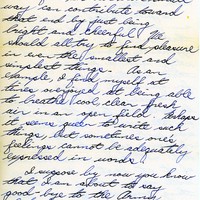 way can contribute toward
that end by just being
bright and cheerful! We
should all try to find pleasure
in even the smallest and
simplest things. As an
example, I find myself at
times overjoyed at being able
to breathe cool, clean, fresh
air in an open field. Perhaps
it seems queer to write such
things, but sometimes one's
feelings cannot be adequately
expressed in words.
I suppose by now you know
that I am about to say
good-bye to the Army